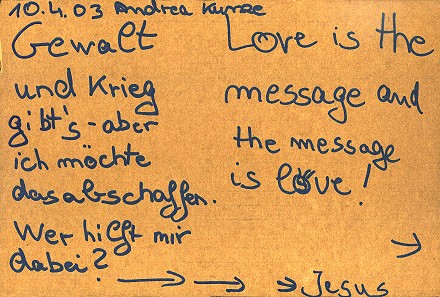 10.4.03 Andrea Kunze
Gewalt
und Krieg
gibt's - aber
ich möchte
das abschaffen.
Wer hilft mir
dabei?
Love is the
message and
the message
is love!
→
→ → → Jesus